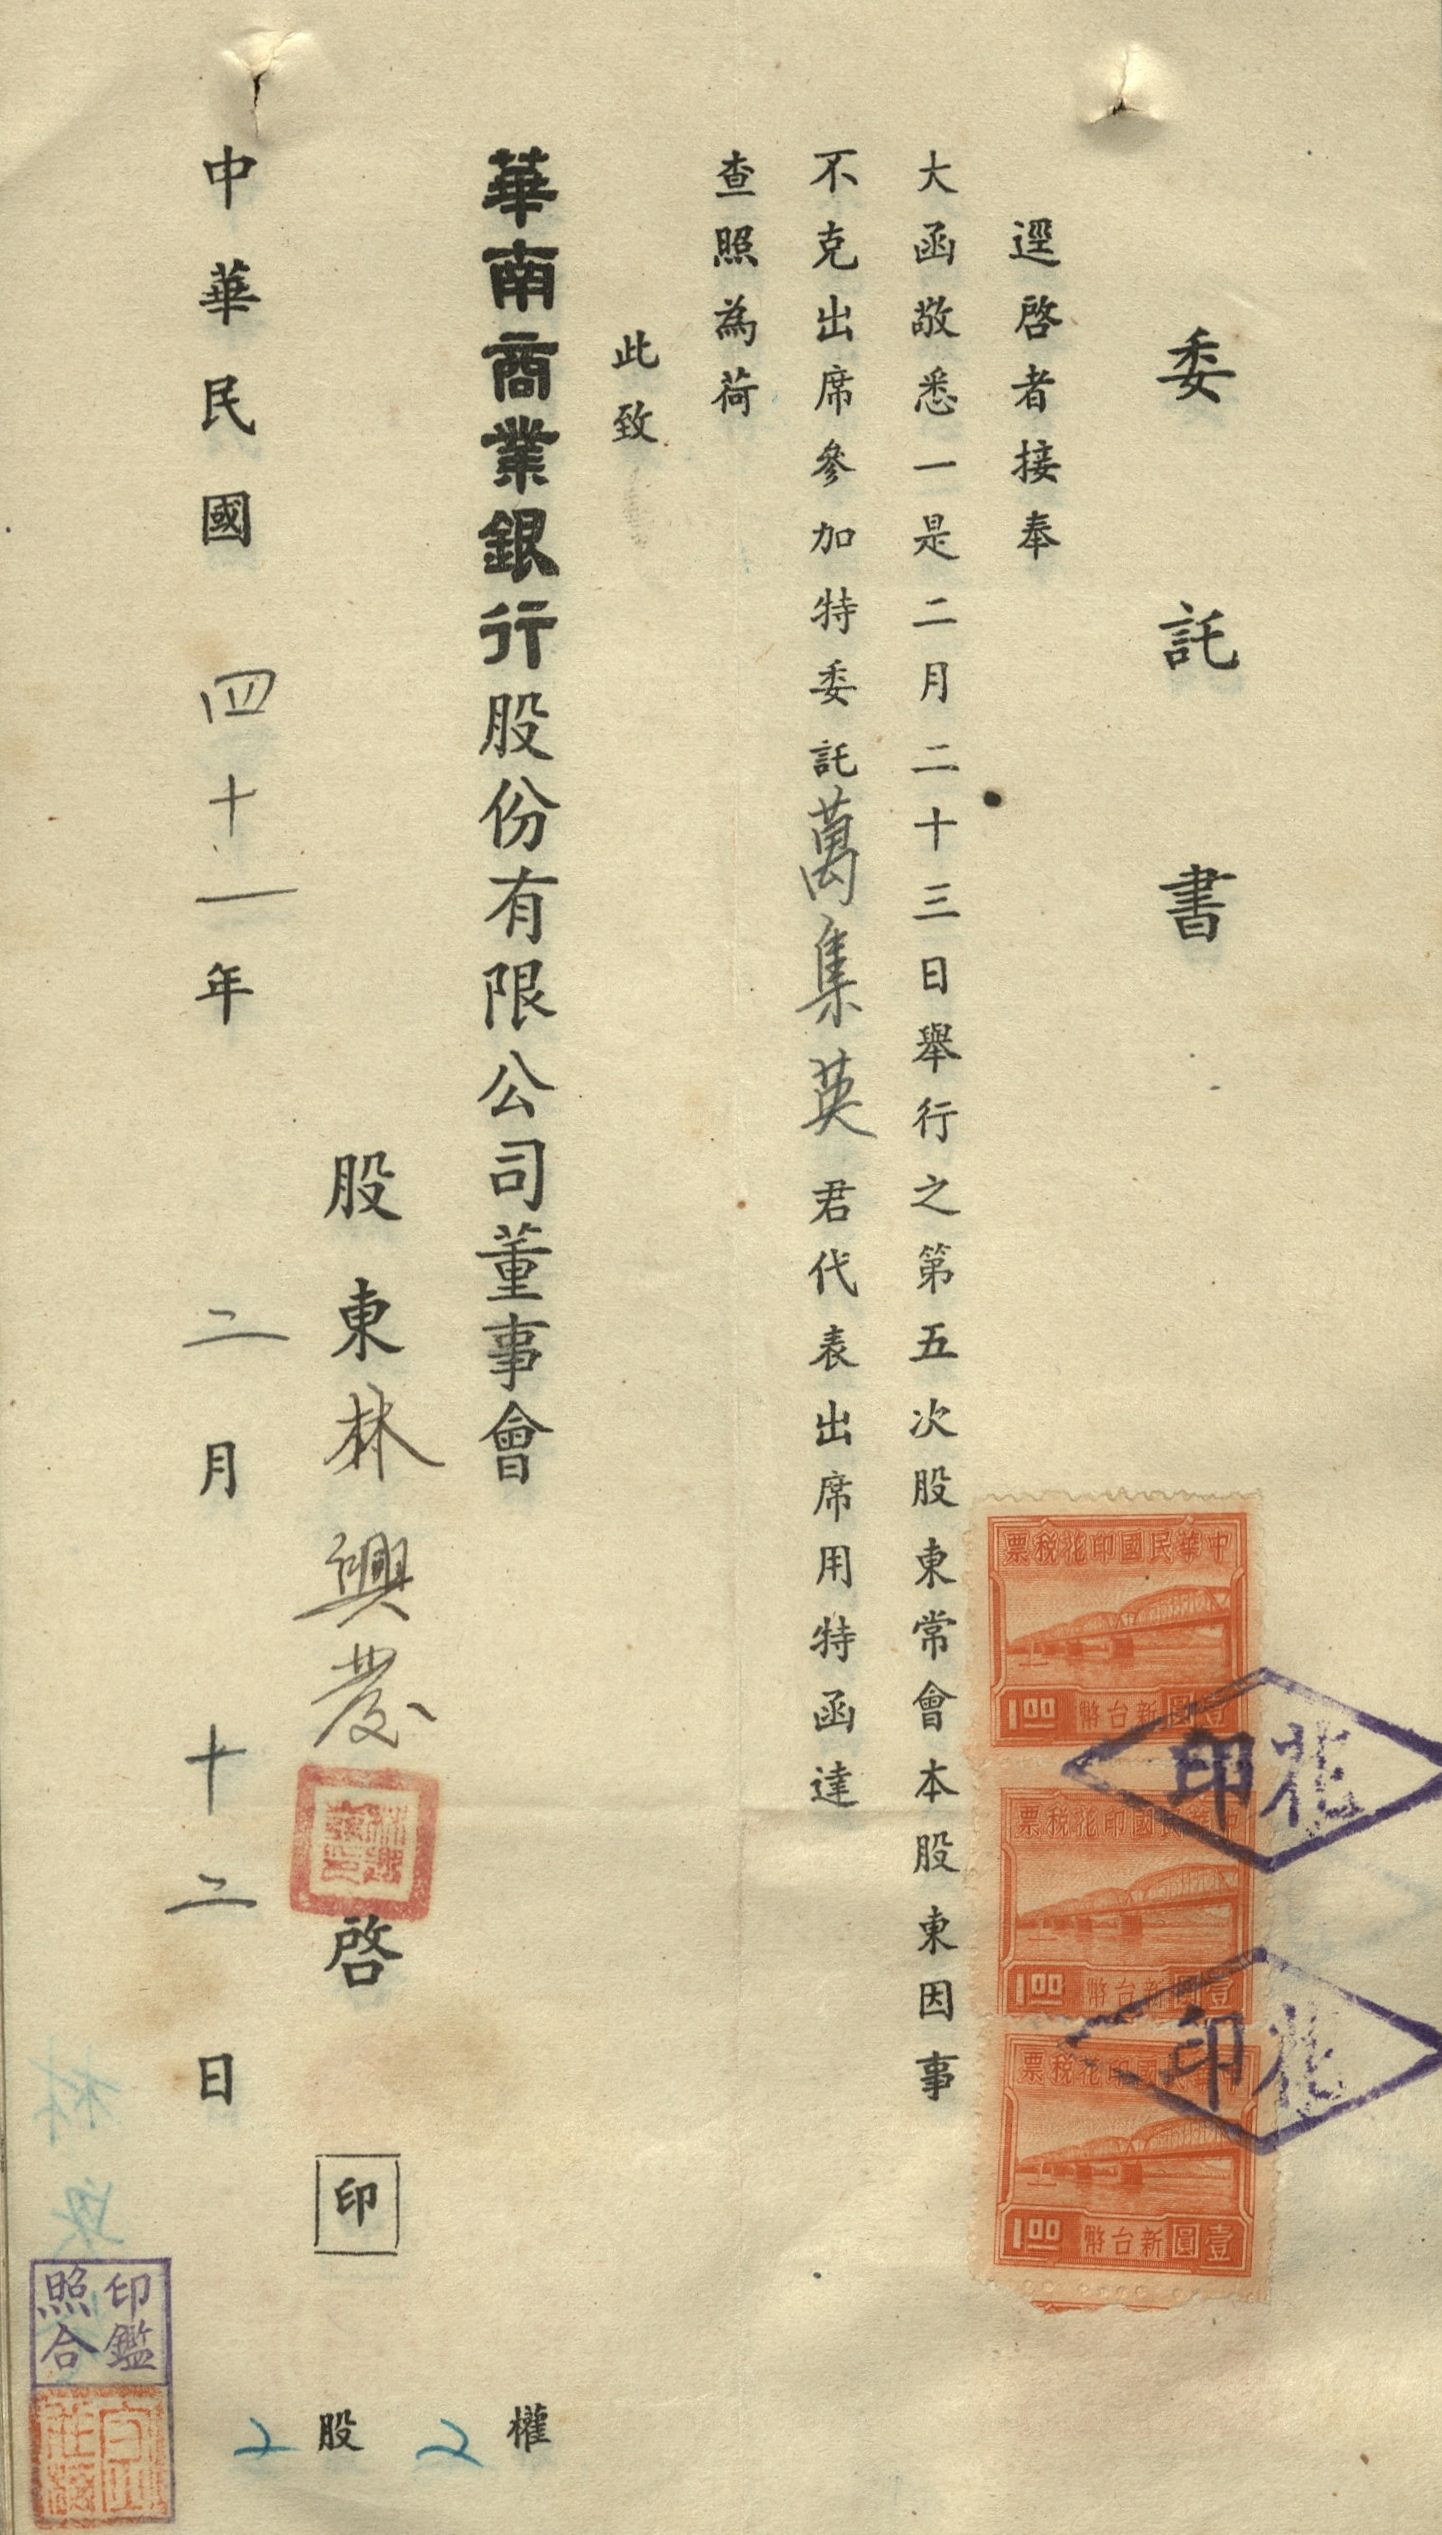 委託書
逕啓者接奉
大函敬悉一是二月二十三日舉行之第五次股東常會本股東因事
不克出席參加特委託萬集英君代表出席用特函達
查照為荷
此致
華南商業銀行股份有限公司董事會
股東林興發啓 印
中華民國四十一年二月十二日
票稅花印國民華中
1.00 幣台新圓壹
票稅花印國民華中
1.00 幣台新圓壹
票稅花印國民華中
1.00 幣台新圓壹
印花
印花
2權
2股
印鑑
照合